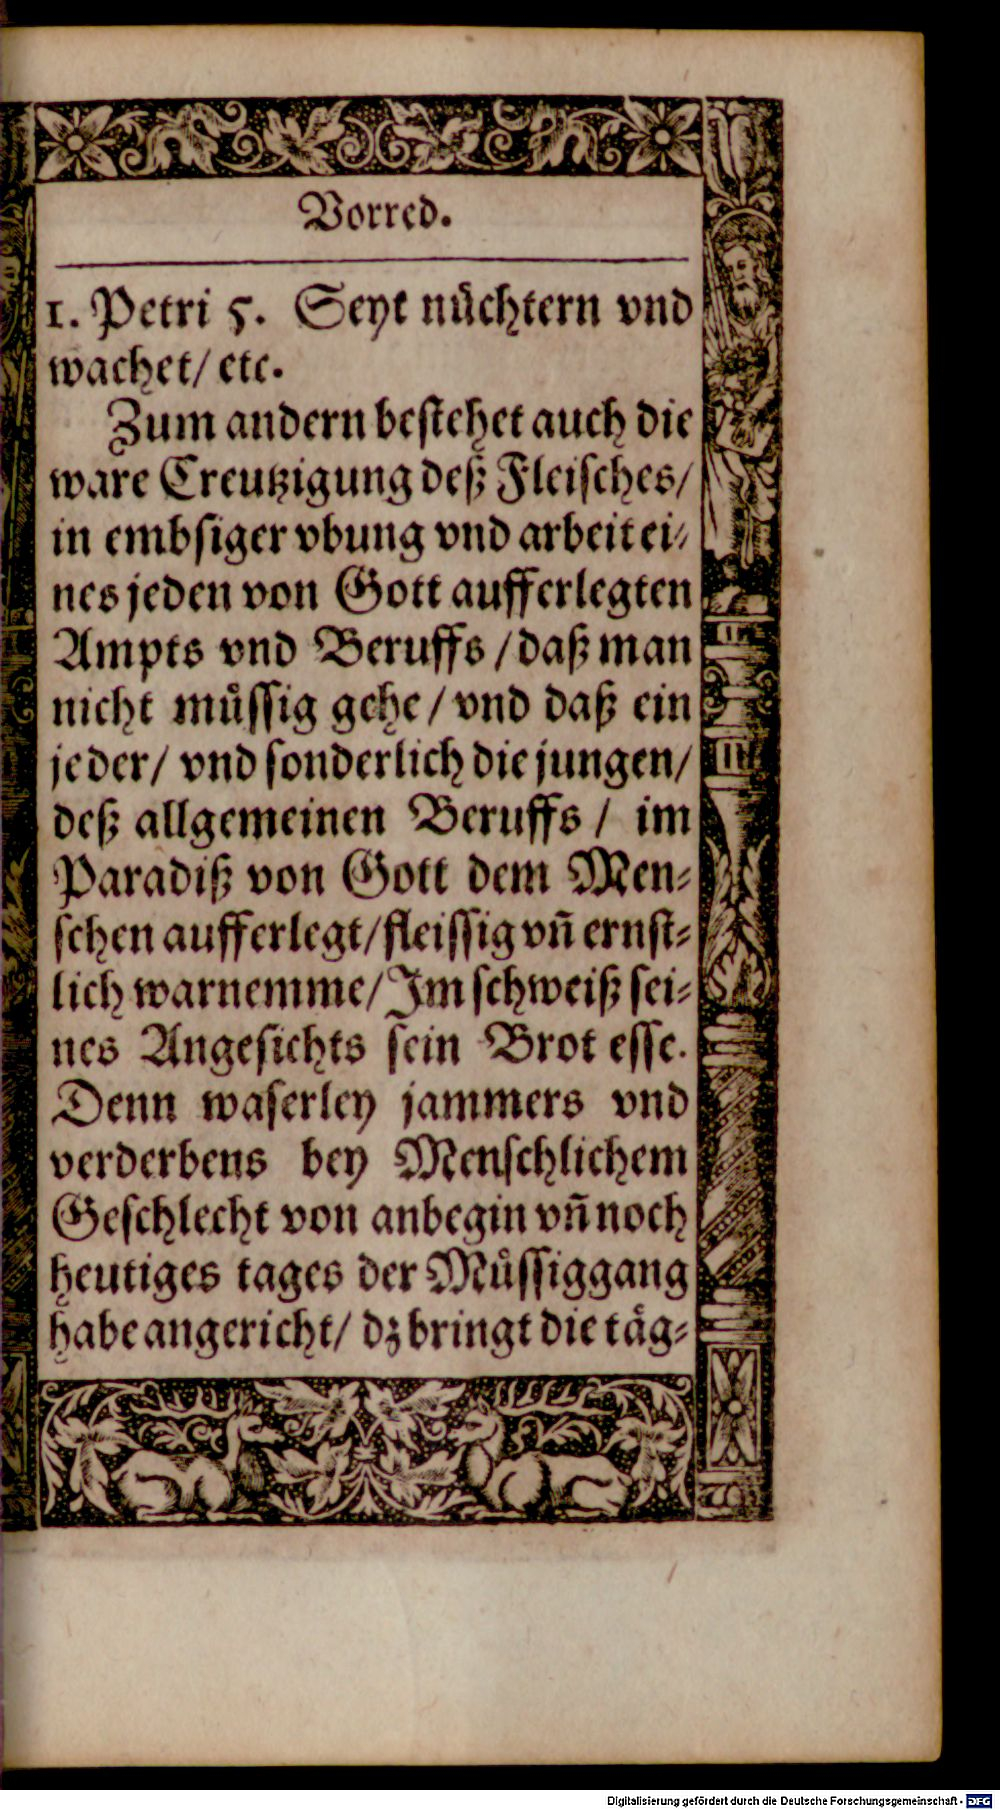 Vorred.
1. Petri 5. Seyt nüchtern vnd
wachet/ etc.
Zum andern bestehet auch die
ware Creutzigung deß Fleisches/
in embsiger vbung vnd arbeit ei-
nes jeden von Gott aufferlegten
Ampts vnd Beruffs / daß man
nicht müssig gehe / vnd daß ein
jeder/ vnd sonderlich die jungen/
deß allgemeinen Beruffs / im
Paradiß von Gott dem Men-
schen aufferlegt/ fleissig vñ ernst-
lich warnemme/ Im schweiß sei-
nes Angesichts sein Brot esse.
Denn waserley jammers vnd
verderbens bey Menschlichem
Geschlecht von anbegin vñ noch
heutiges tages der Müssiggang
habe angericht/ dz bringt die täg-
Digitalisierung gefördert durch die Deutsche Forschungsgemeinschaft - DFG